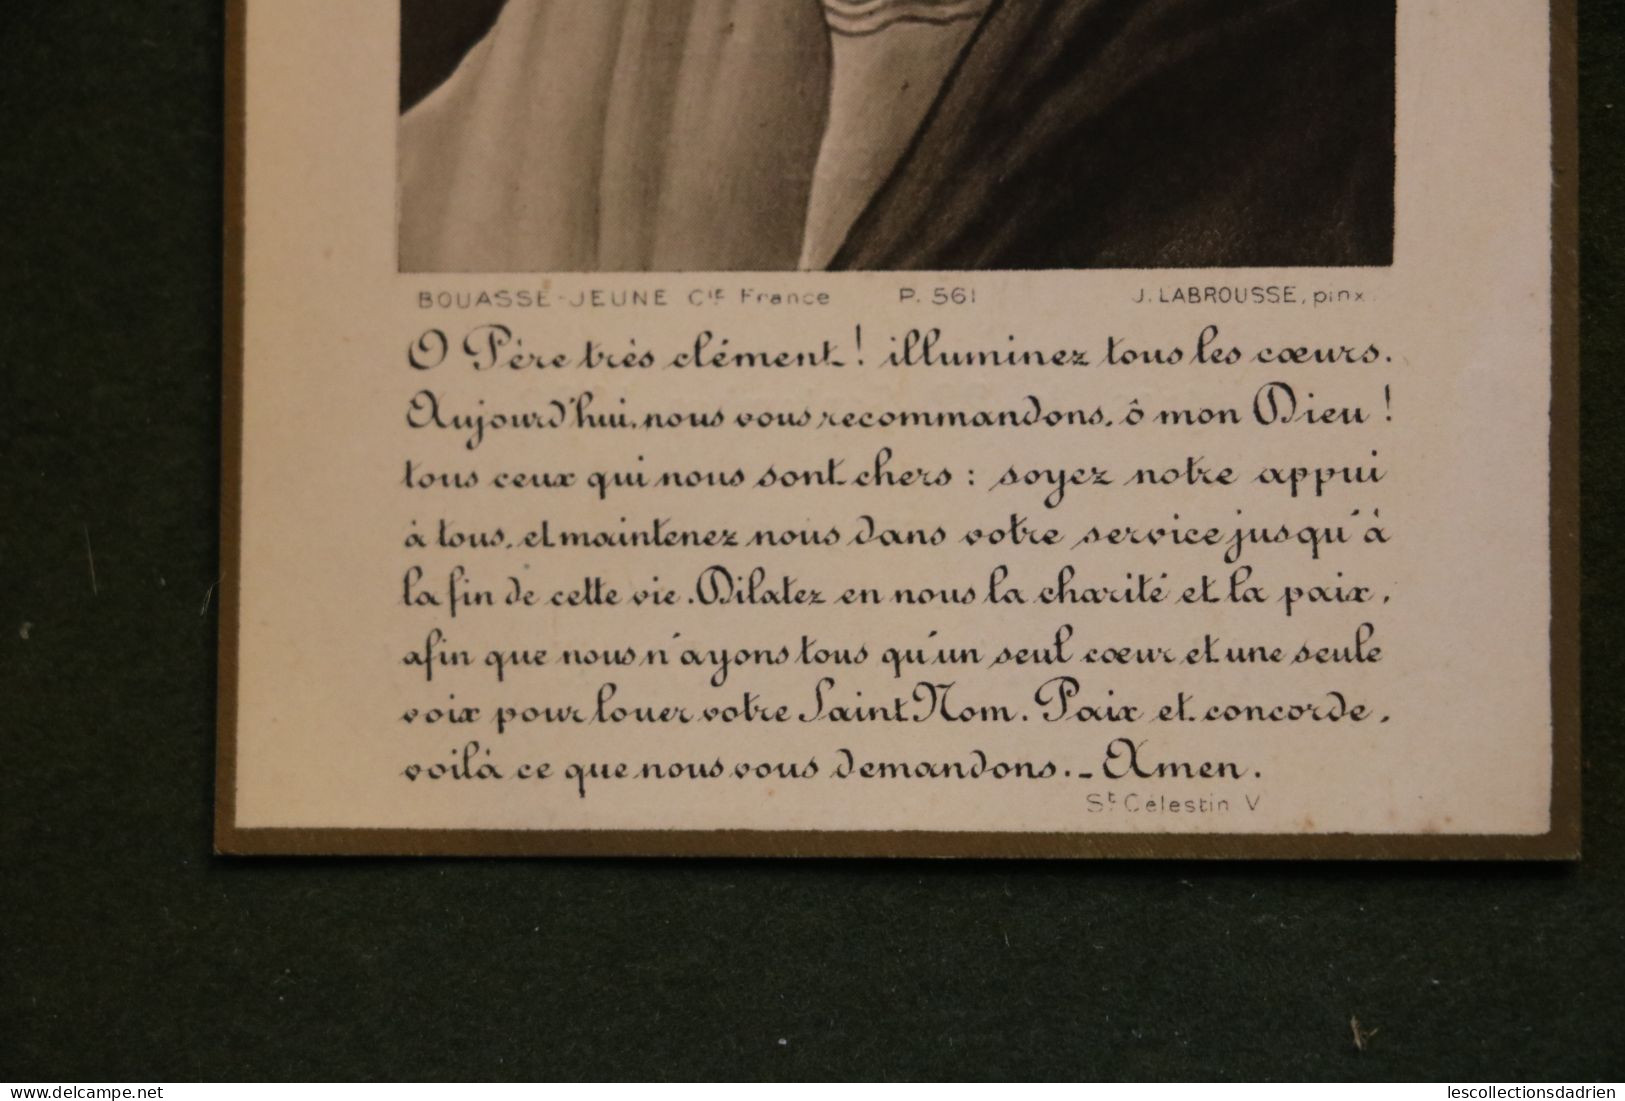 BOUASSE-JEUNE Cie France P. 561 J. LABROUSSE, pinx.
O Père très clément ! illuminez tous les cœurs.
Aujourd'hui, nous vous recommandons, ô mon Dieu !
tous ceux qui nous sont chers : soyez notre appui
à tous, et maintenez nous dans votre service jusqu'à
la fin de cette vie. Dilatez en nous la charité et la paix,
afin que nous n'ayons tous qu'un seul cœur et une seule
voix pour louer votre Saint Nom. Paix et concorde,
voilà ce que nous vous demandons. - Amen.
St Célestin V
delcampe.net
lescollectionsdadrien